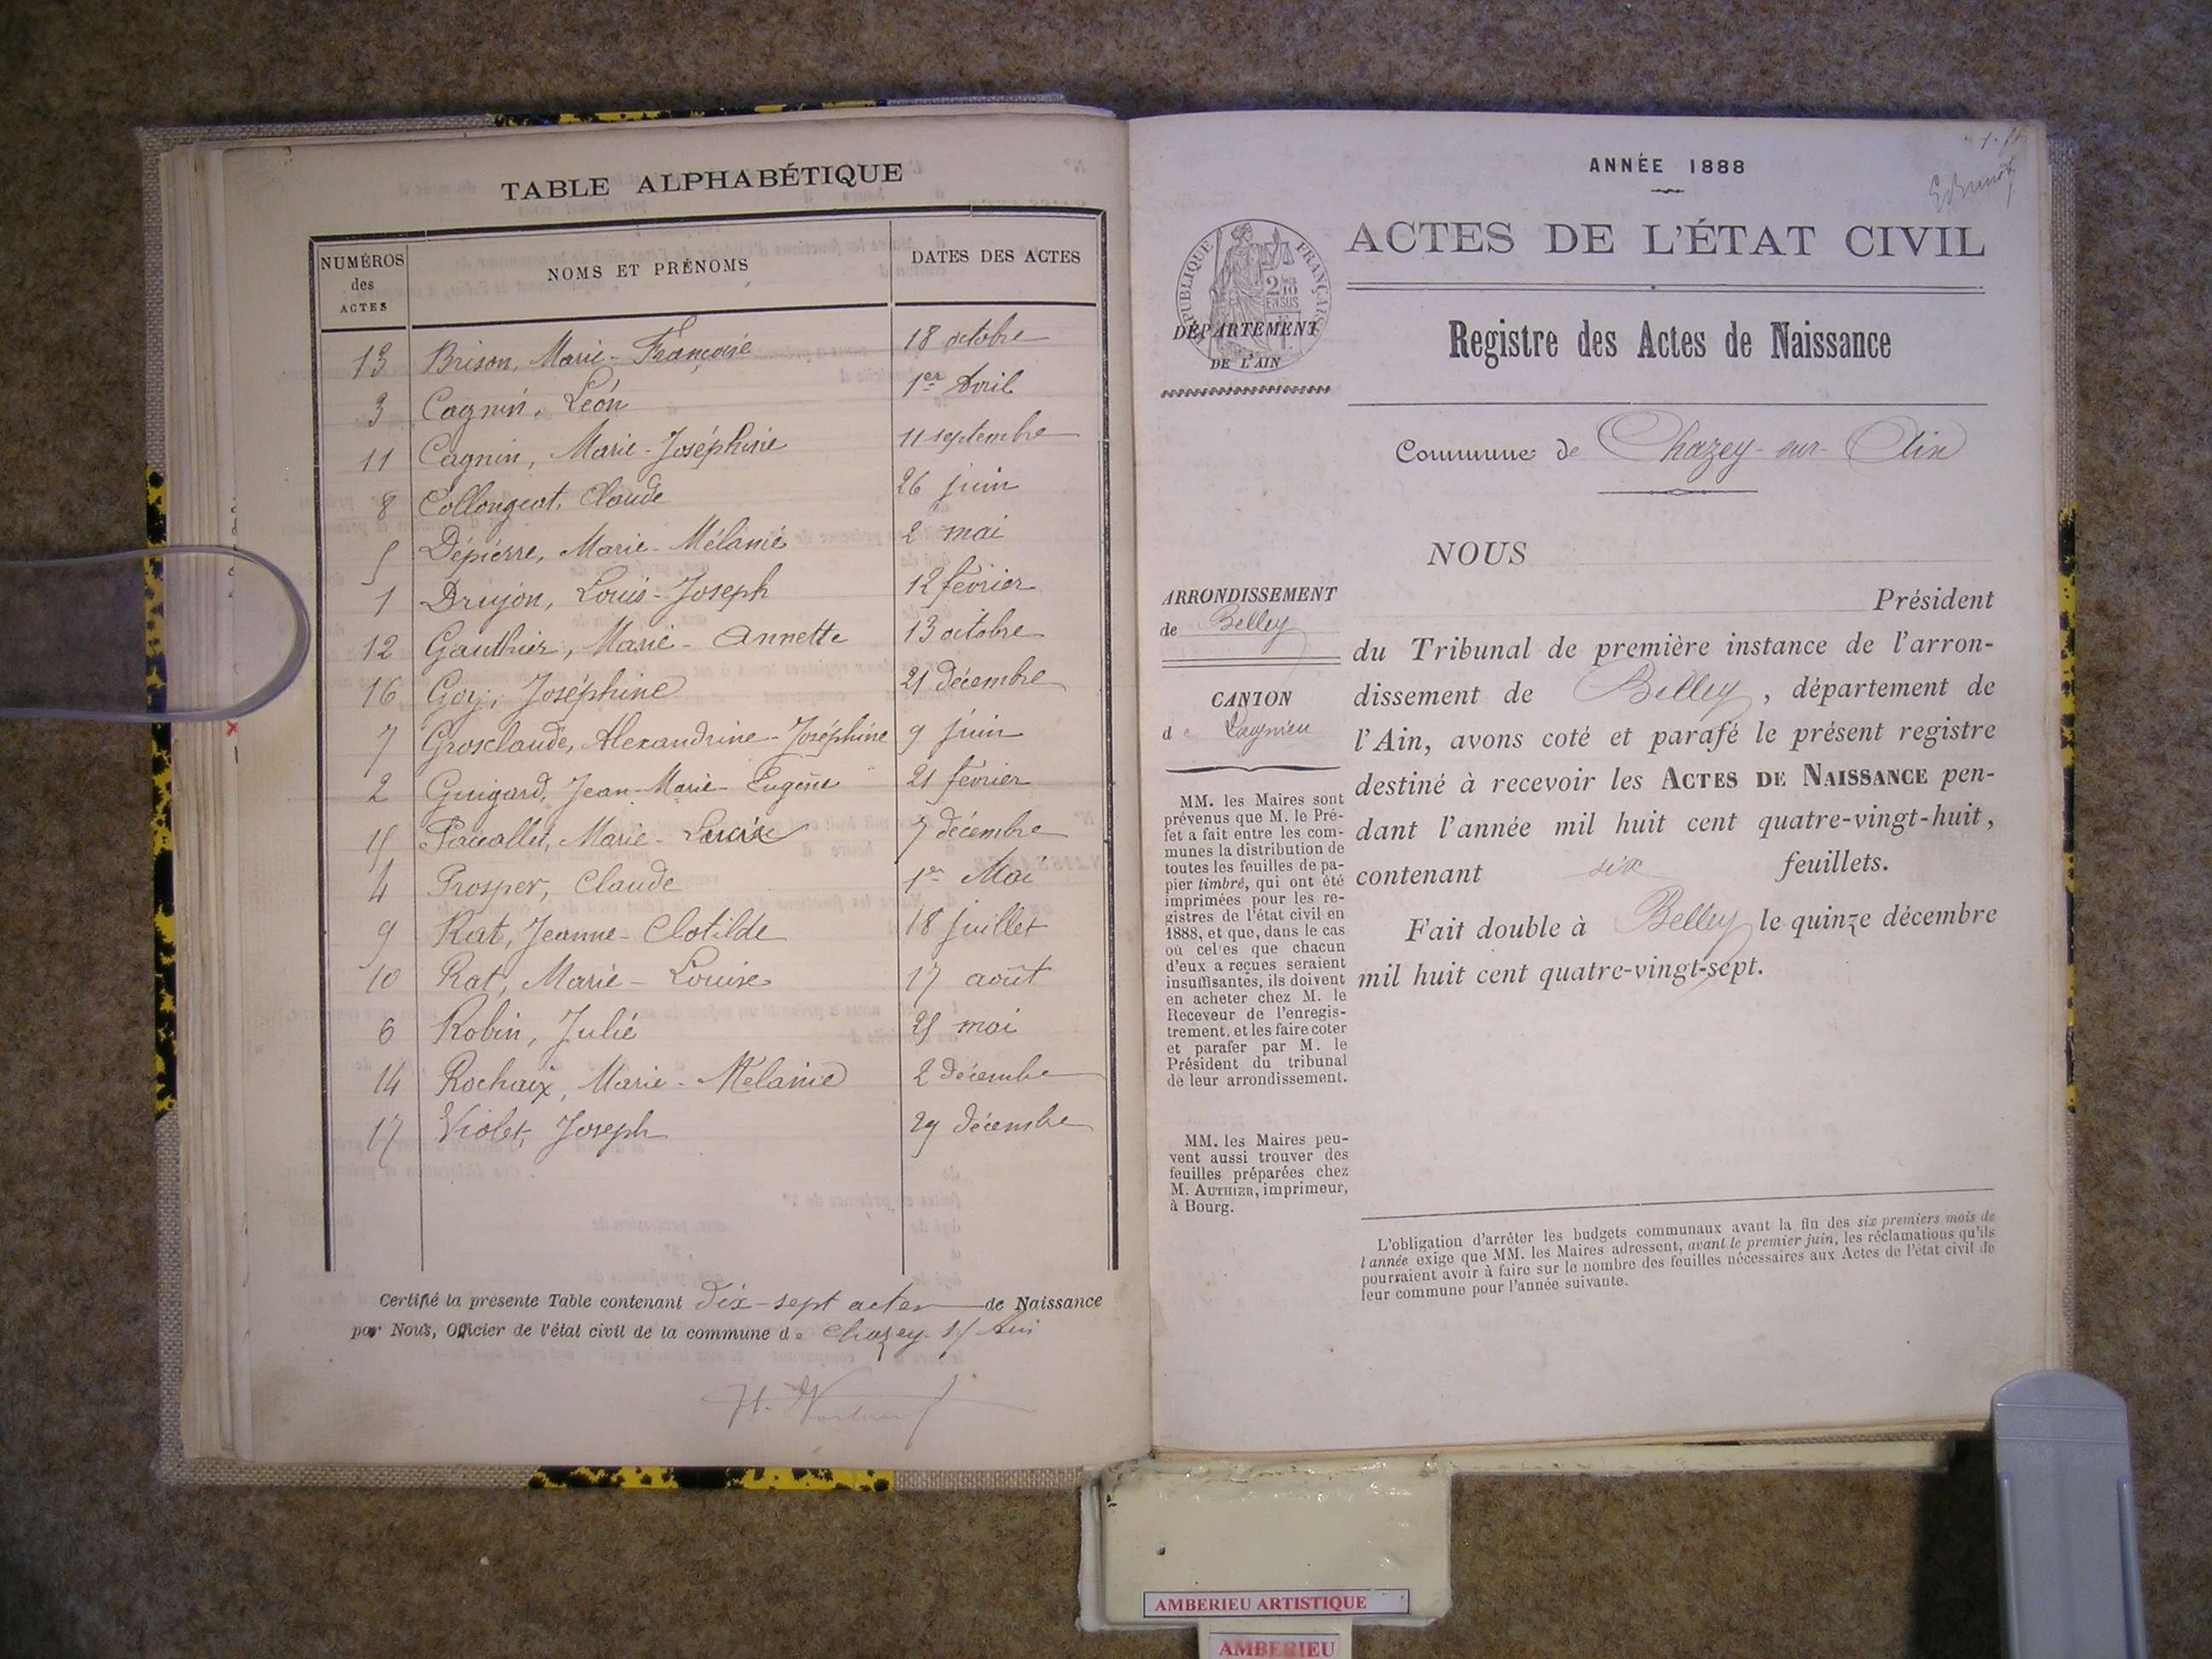 TABLE ALPHABÉTIQUE
NUMÉROS des ACTES NOMS ET PRÉNOMS DATES DES ACTES
13 Brison, Marie-Françoise 18 octobre
3 Cagnin, Léon 1er Avril
11 Cagnin, Marie-Joséphine 11 septembre
8 Collongeat, Claude 26 juin
5 Dépierre, Marie-Mélanie 2 mai
1 Drujon, Louis-Joseph 12 février
12 Gauthier, Marie-Annette 13 octobre
16 Goy, Joséphine 21 décembre
7 Grosclaude, Alexandrine-Joséphine 9 juin
2 Guigard, Jean-Marie-Eugène 21 février
15 Marie- 7 décembre
4 Prosper, Claude 1er Mai
9 Rat, Jeanne-Clotilde 18 juillet
10 Rat, Marie-Louise 17 août
6 Robin, Julie 25 mai
14 Rochaix, Marie-Mélanie 2 décembre
17 Violet, Joseph 29 décembre
Certifié la présente Table contenant dix-sept actes de Naissance
par Nous, Officier de l'état civil de la commune de Chazey s/ Ain
ANNÉE 1888
RÉPUBLIQUE FRANÇAISE
ACTES DE L'ÉTAT CIVIL
DÉPARTEMENT
DE L'AIN
Registre des Actes de Naissance
Commune de Chazey-sur-Ain
NOUS
ARRONDISSEMENT
de Belley
CANTON
de Lagnieu
MM. les Maires sont
prévenus que M. le Pré-
fet a fait entre les com-
munes la distribution de
toutes les feuilles de pa-
pier timbré, qui ont été
imprimées pour les re-
gistres de l'état civil en
1888, et que, dans le cas
où celles que chacun
d'eux a reçues seraient
insuffisantes, ils doivent
en acheter chez M. le
Receveur de l'enregis-
trement, et les faire coter
et parafer par M. le
Président du tribunal
de leur arrondissement.
MM. les Maires peu-
vent aussi trouver des
feuilles préparées chez
M. AUTHIER, imprimeur,
à Bourg.
Président
du Tribunal de première instance de l'arron-
dissement de Belley, département de
l'Ain, avons coté et parafé le présent registre
destiné à recevoir les ACTES DE NAISSANCE pen-
dant l'année mil huit cent quatre-vingt-huit,
contenant six feuillets.
Fait double à Belley le quinze décembre
mil huit cent quatre-vingt-sept.
L'obligation d'arrêter les budgets communaux avant la fin des six premiers mois de
l'année exige que MM. les Maires adressent, avant le premier juin, les réclamations qu'ils
pourraient avoir à faire sur le nombre des feuilles nécessaires aux Actes de l'état civil de
leur commune pour l'année suivante.
AMBERIEU ARTISTIQUE
AMBERIEU